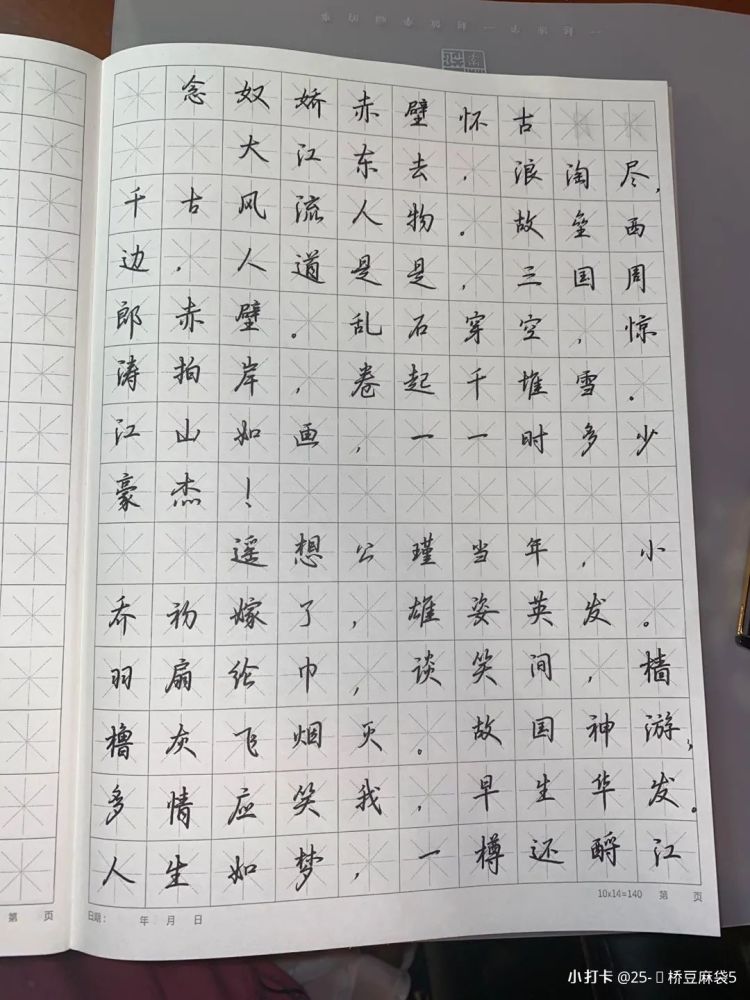 念奴娇赤壁怀古
大江东去，浪淘尽，
千古风流人物。故垒西
边，人道是是，三国周
郎赤壁。乱石穿空，惊
涛拍岸，卷起千堆雪。
江山如画，一一时多少
豪杰！
遥想公瑾当年，小
乔初嫁了，雄姿英发。
羽扇纶巾，谈笑间，樯
橹灰飞烟灭。故国神游，
多情应笑我，早生华发。
人生如梦，一樽还酹江
10x14=140 第 页
日期： 年 月 日
第 页
小打卡 @25-桥豆麻袋5